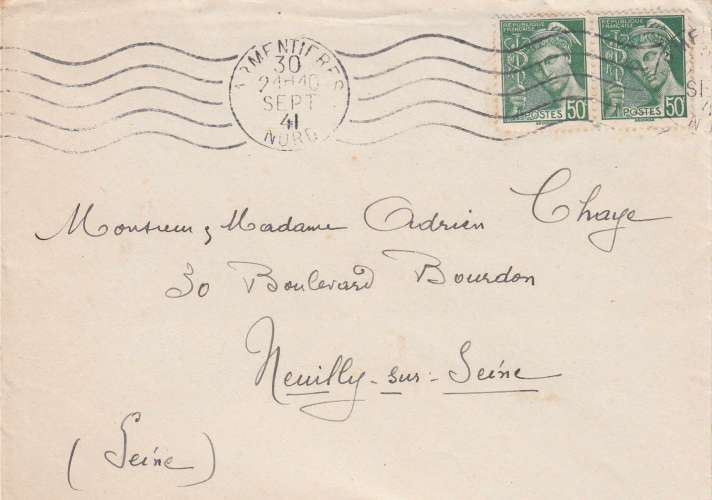 ARMENTIERES
30
SEPT
41
NORD
RÉPUBLIQUE FRANÇAISE
POSTES 50
RÉPUBLIQUE FRANÇAISE
POSTES 50
Monsieur & Madame Adrien Chaye
30 Boulevard Bourdon
Neuilly-sur-Seine
(Seine)